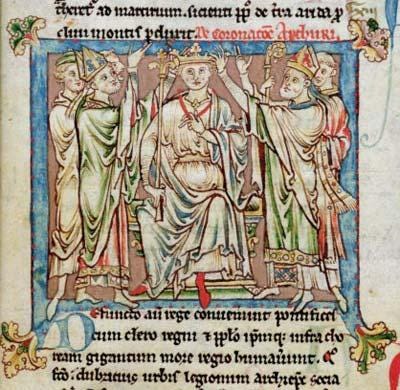 ad martirium. sicienti ppľo de tra arida p
clivi montis pduxit. De coronacõe Arthuri.
Defuncto aũ rege convenerunt pontifices
cum clero regni & pplo ipmq; infra cho
ream gigantum more regio humaverunt. &
dubricius urbis legionum archiepc socia